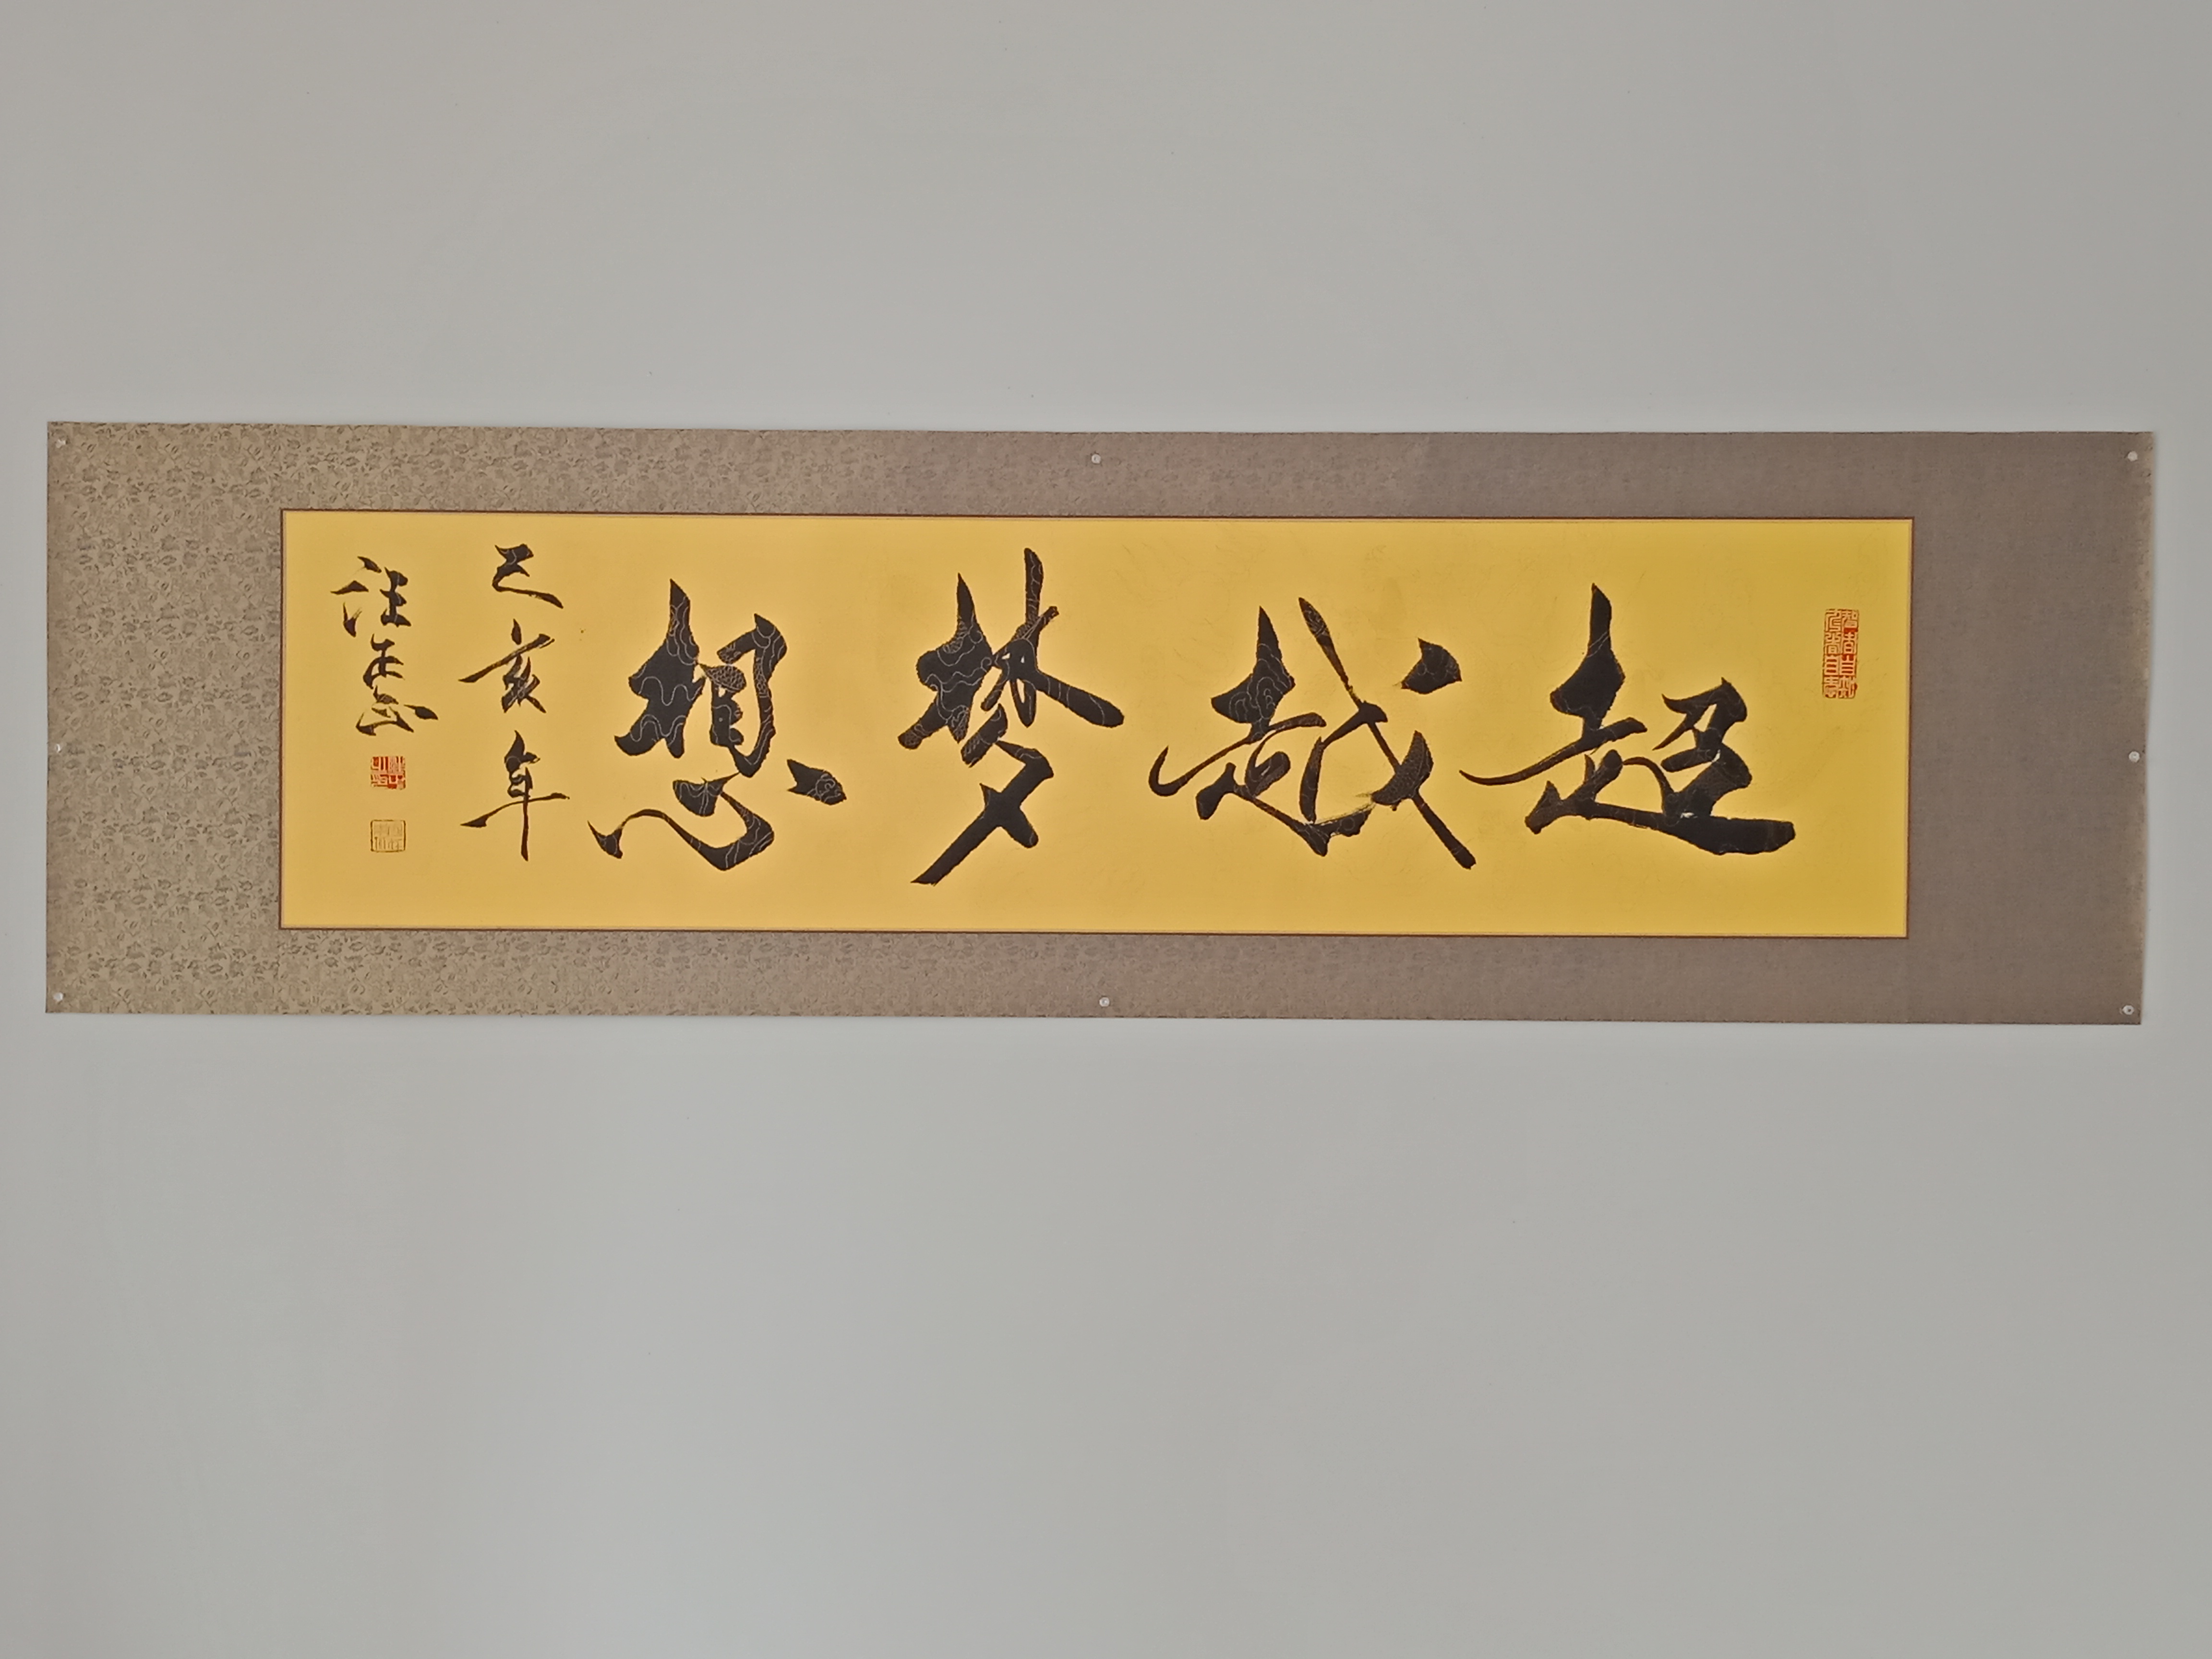 超越梦想
己亥年
汪